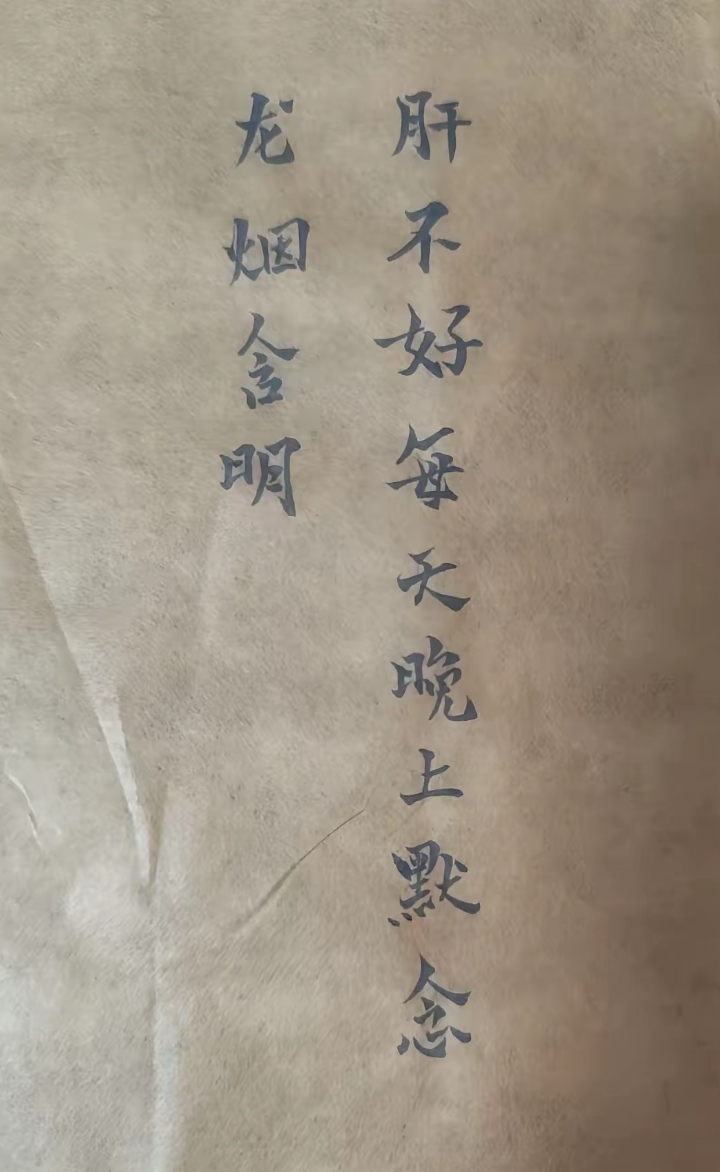 肝不好每天晚上默念
龙烟含明